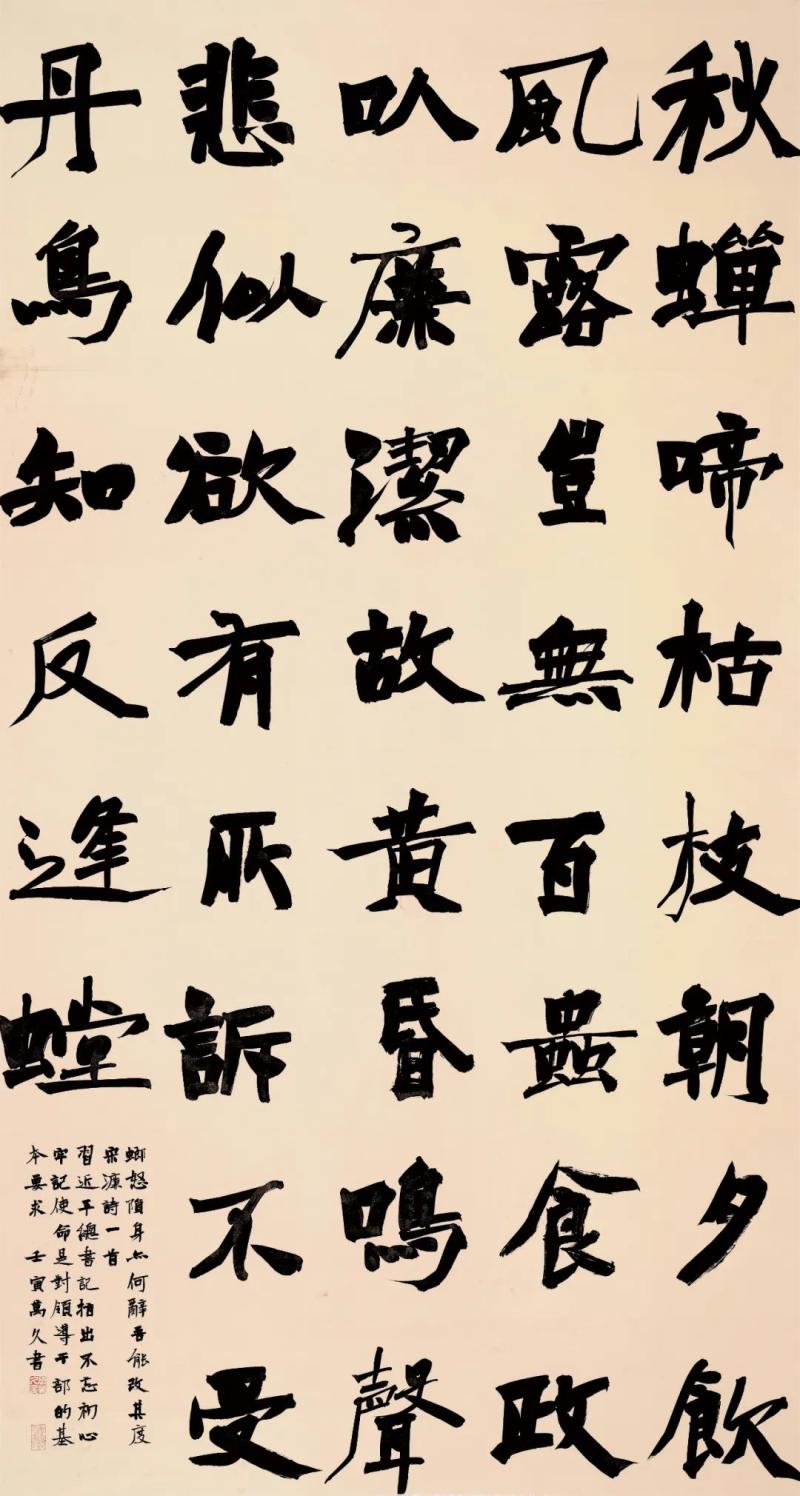 秋蟬啼枯枝朝夕飲
風露豈無百蟲食政
以廉潔故黃昏鳴聲
悲似欲有所訴不受
丹鳥知反逢螳
螂怒隕身亦何辭吾能改其度
宋濂詩一首
習近平總書記指出不忘初心
牢記使命是對領導干部的基
本要求 壬寅萬久書